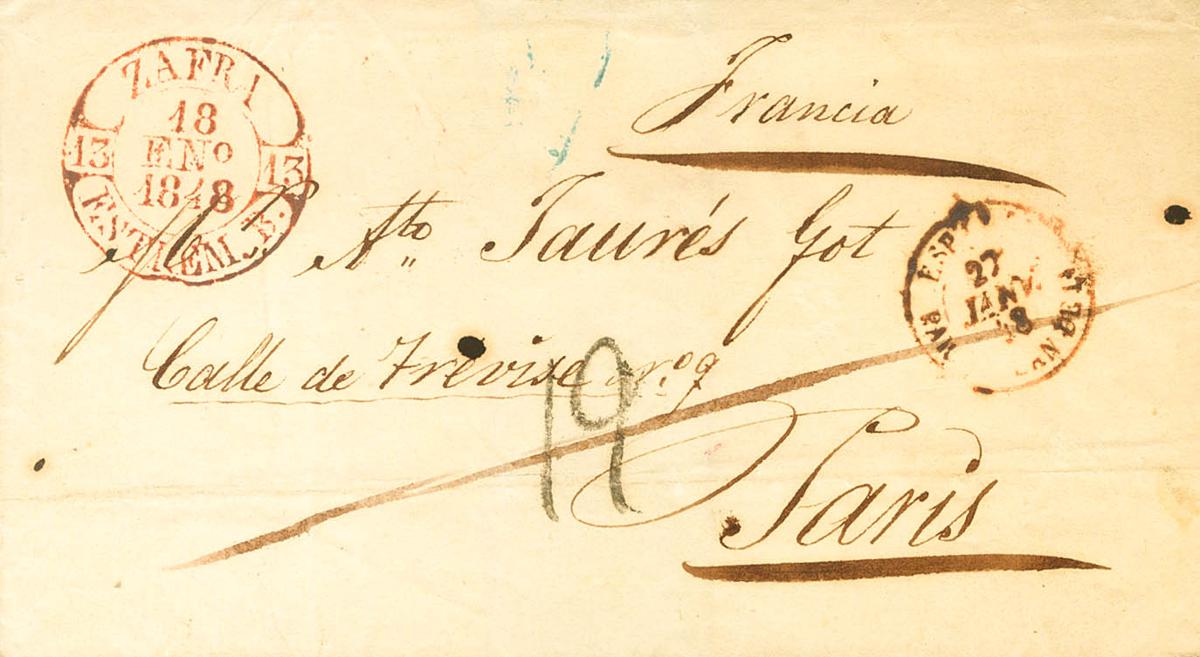 ZAFRA
18
ENº
1848
13 13
ESTREM. B.
Francia
Mr Ato Jaurés Got
Calle de Trévise nro. 9
Paris
19
ESP
27
JANV.
48
PAR
ON DE